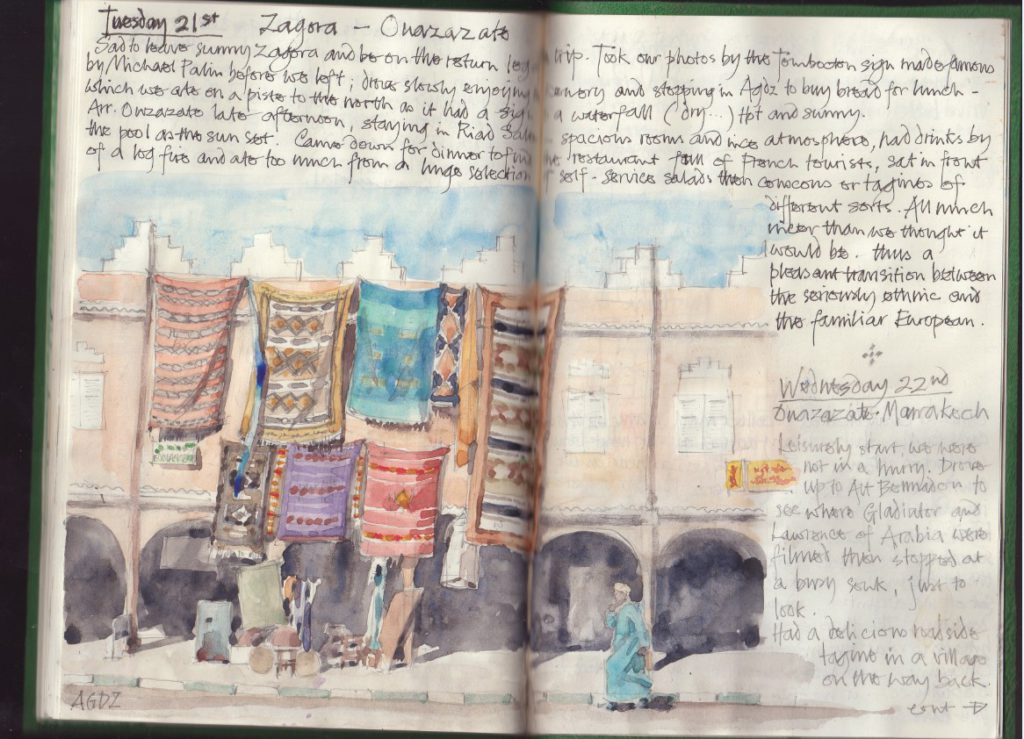 Tuesday 21st Zagora - Ouazazate
Sad to leave sunny Zagora and be on the return leg trip. Took our photos by the Tombocton sign made famous
by Michael Palin before we left; drove slowly enjoying scenery and stopping in Agdz to buy bread for lunch -
which we ate on a piste to the north as it had a sign a waterfall (dry...) Hot and sunny.
Arr. Ouazazate late afternoon, staying in Riad - spacious rooms and nice atmosphere, had drinks by
the pool as the sun set. Came down for dinner to find the restaurant full of French tourists, sat in front
of a log fire and ate too much from a huge selection of self-service salads then couscous or tagines of
different sorts. All much
nicer than we thought it
would be. thus a
pleasant transition between
the seriously ethnic and
the familiar European.
Wednesday 22nd
Ouazazate - Marrakech
Leisurely start, we were
not in a hurry. Drove
up to Ait Benhadou to
see where Gladiator and
Lawrence of Arabia were
filmed then stopped at
a busy souk, just to
look.
Had a delicious roadside
tagine in a village
on the way back.
cont
AGDZ